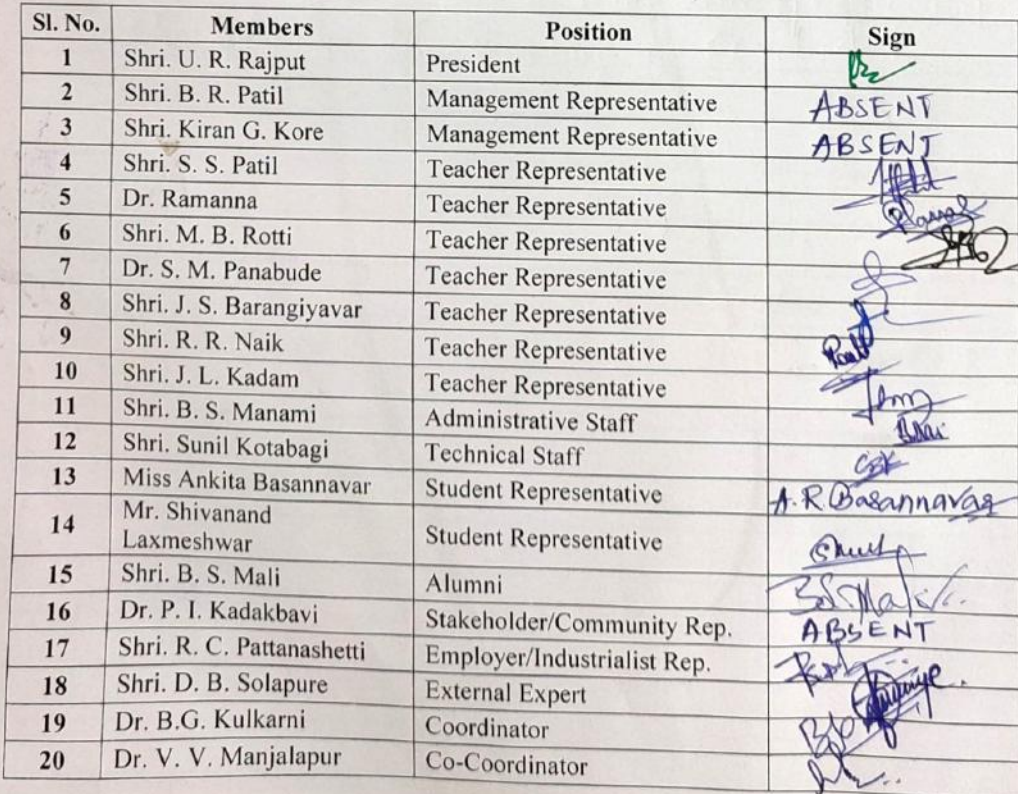 Sl. No. Members Position Sign
1 Shri. U. R. Rajput President
2 Shri. B. R. Patil Management Representative ABSENT
3 Shri. Kiran G. Kore Management Representative ABSENT
4 Shri. S. S. Patil Teacher Representative
5 Dr. Ramanna Teacher Representative
6 Shri. M. B. Rotti Teacher Representative
7 Dr. S. M. Panabude Teacher Representative
8 Shri. J. S. Barangiyavar Teacher Representative
9 Shri. R. R. Naik Teacher Representative
10 Shri. J. L. Kadam Teacher Representative
11 Shri. B. S. Manami Administrative Staff
12 Shri. Sunil Kotabagi Technical Staff
13 Miss Ankita Basannavar Student Representative A. R. Basannavar
14 Mr. Shivanand
Laxmeshwar Student Representative
15 Shri. B. S. Mali Alumni B.S. Mali
16 Dr. P. I. Kadakbavi Stakeholder/Community Rep. ABSENT
17 Shri. R. C. Pattanashetti Employer/Industrialist Rep.
18 Shri. D. B. Solapure External Expert
19 Dr. B.G. Kulkarni Coordinator
20 Dr. V. V. Manjalapur Co-Coordinator